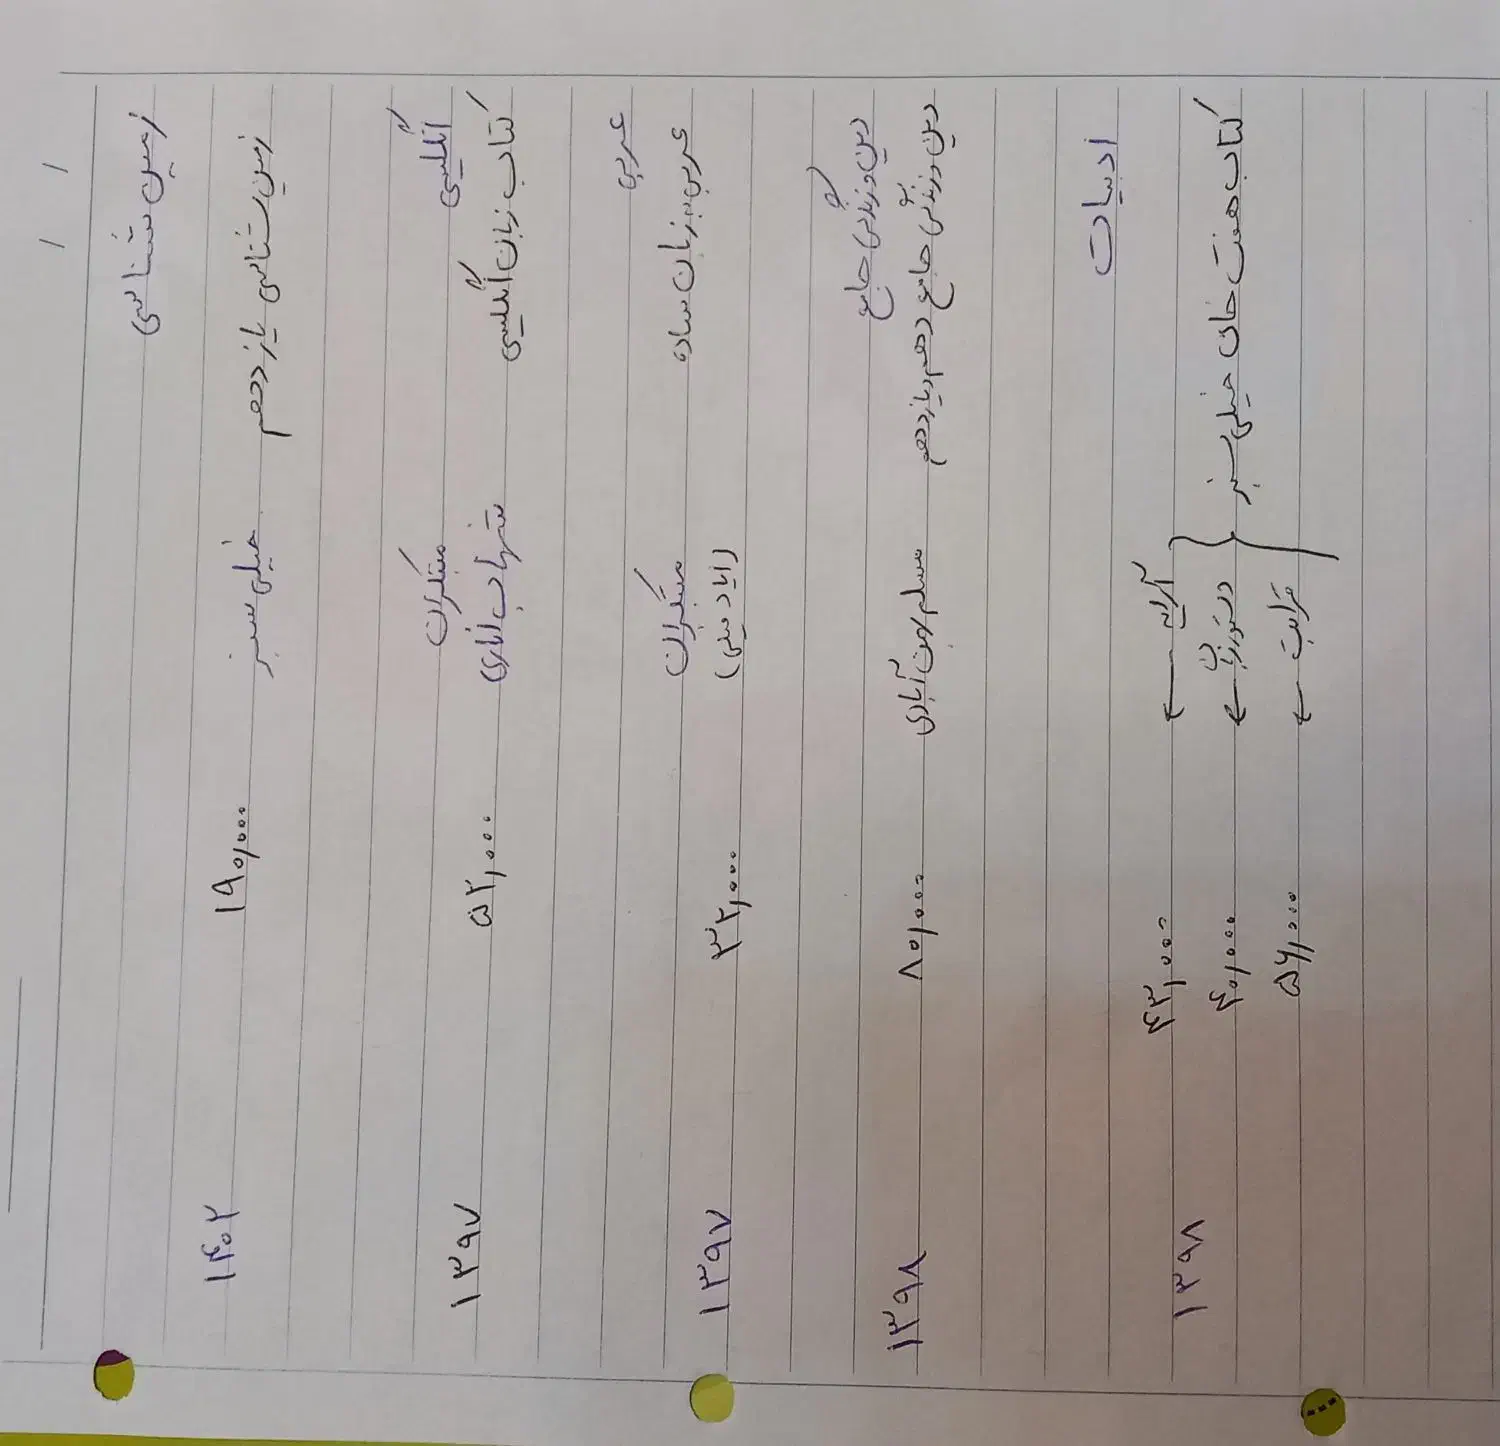 زمین شناسی
زمین شناسی یازدهم خیلی سبز ۱۹۰,۰۰۰ ۱۴۰۲
انگلیسی
کتاب زبان انگلیسی مبتکران شهاب اناری ۵۲,۰۰۰ ۱۳۹۷
عربی
عربی به زبان ساده مبتکران (ایاد فیلی) ۳۲,۰۰۰ ۱۳۹۷
دین و زندگی جامع
دین و زندگی جامع دهم و یازدهم مسلم بهمن آبادی ۸۰,۰۰۰ ۱۳۹۸
ادبیات
کتاب هفت خان خیلی سبز
آرایه ← ۴۲,۰۰۰ ۱۳۹۸
دستور زبان ← ۴۰,۰۰۰
قرابت ← ۵۶,۰۰۰